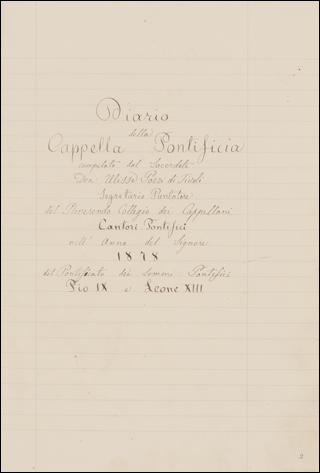 Diario
della
Cappella Pontificia
compilato dal Sacerdote
Don Ulisse Posi di Tivoli
Segretario Puntatore
del Reverendo Collegio dei Cappellani
Cantori Pontificj
nell' Anno del Signore
1878
del Pontificato dei Sommi Pontefici
Pio IX e Leone XIII
2